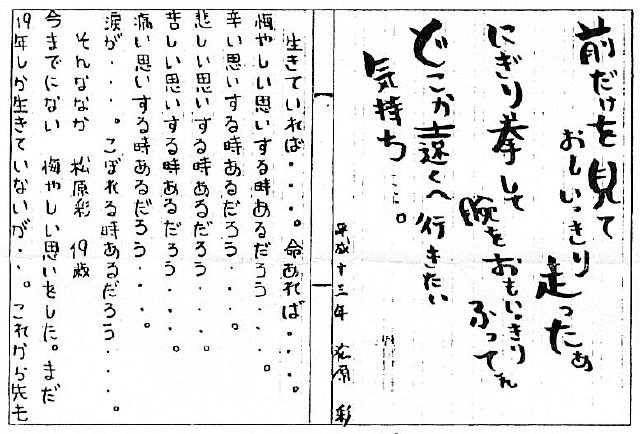 前だけを見て
おもいっきり
走ったぁ
にぎり拳して
腕をおもいっきり
ふってぇ
どこか遠くへ行きたい
気持ち・・・。
平成十三年 松原 彩
生きていれば・・・。命あれば・・・。
悔やしい思いする時あるだろう・・・。
辛い思いする時あるだろう・・・。
悲しい思いする時あるだろう・・・。
苦しい思いする時あるだろう・・・。
痛い思いする時あるだろう・・・。
涙が・・・。こぼれる時あるだろう・・・。
そんななか 松原彩 19歳
今までにない 悔やしい思いをした。まだ
19年しか生きていないが・・・。これから先も